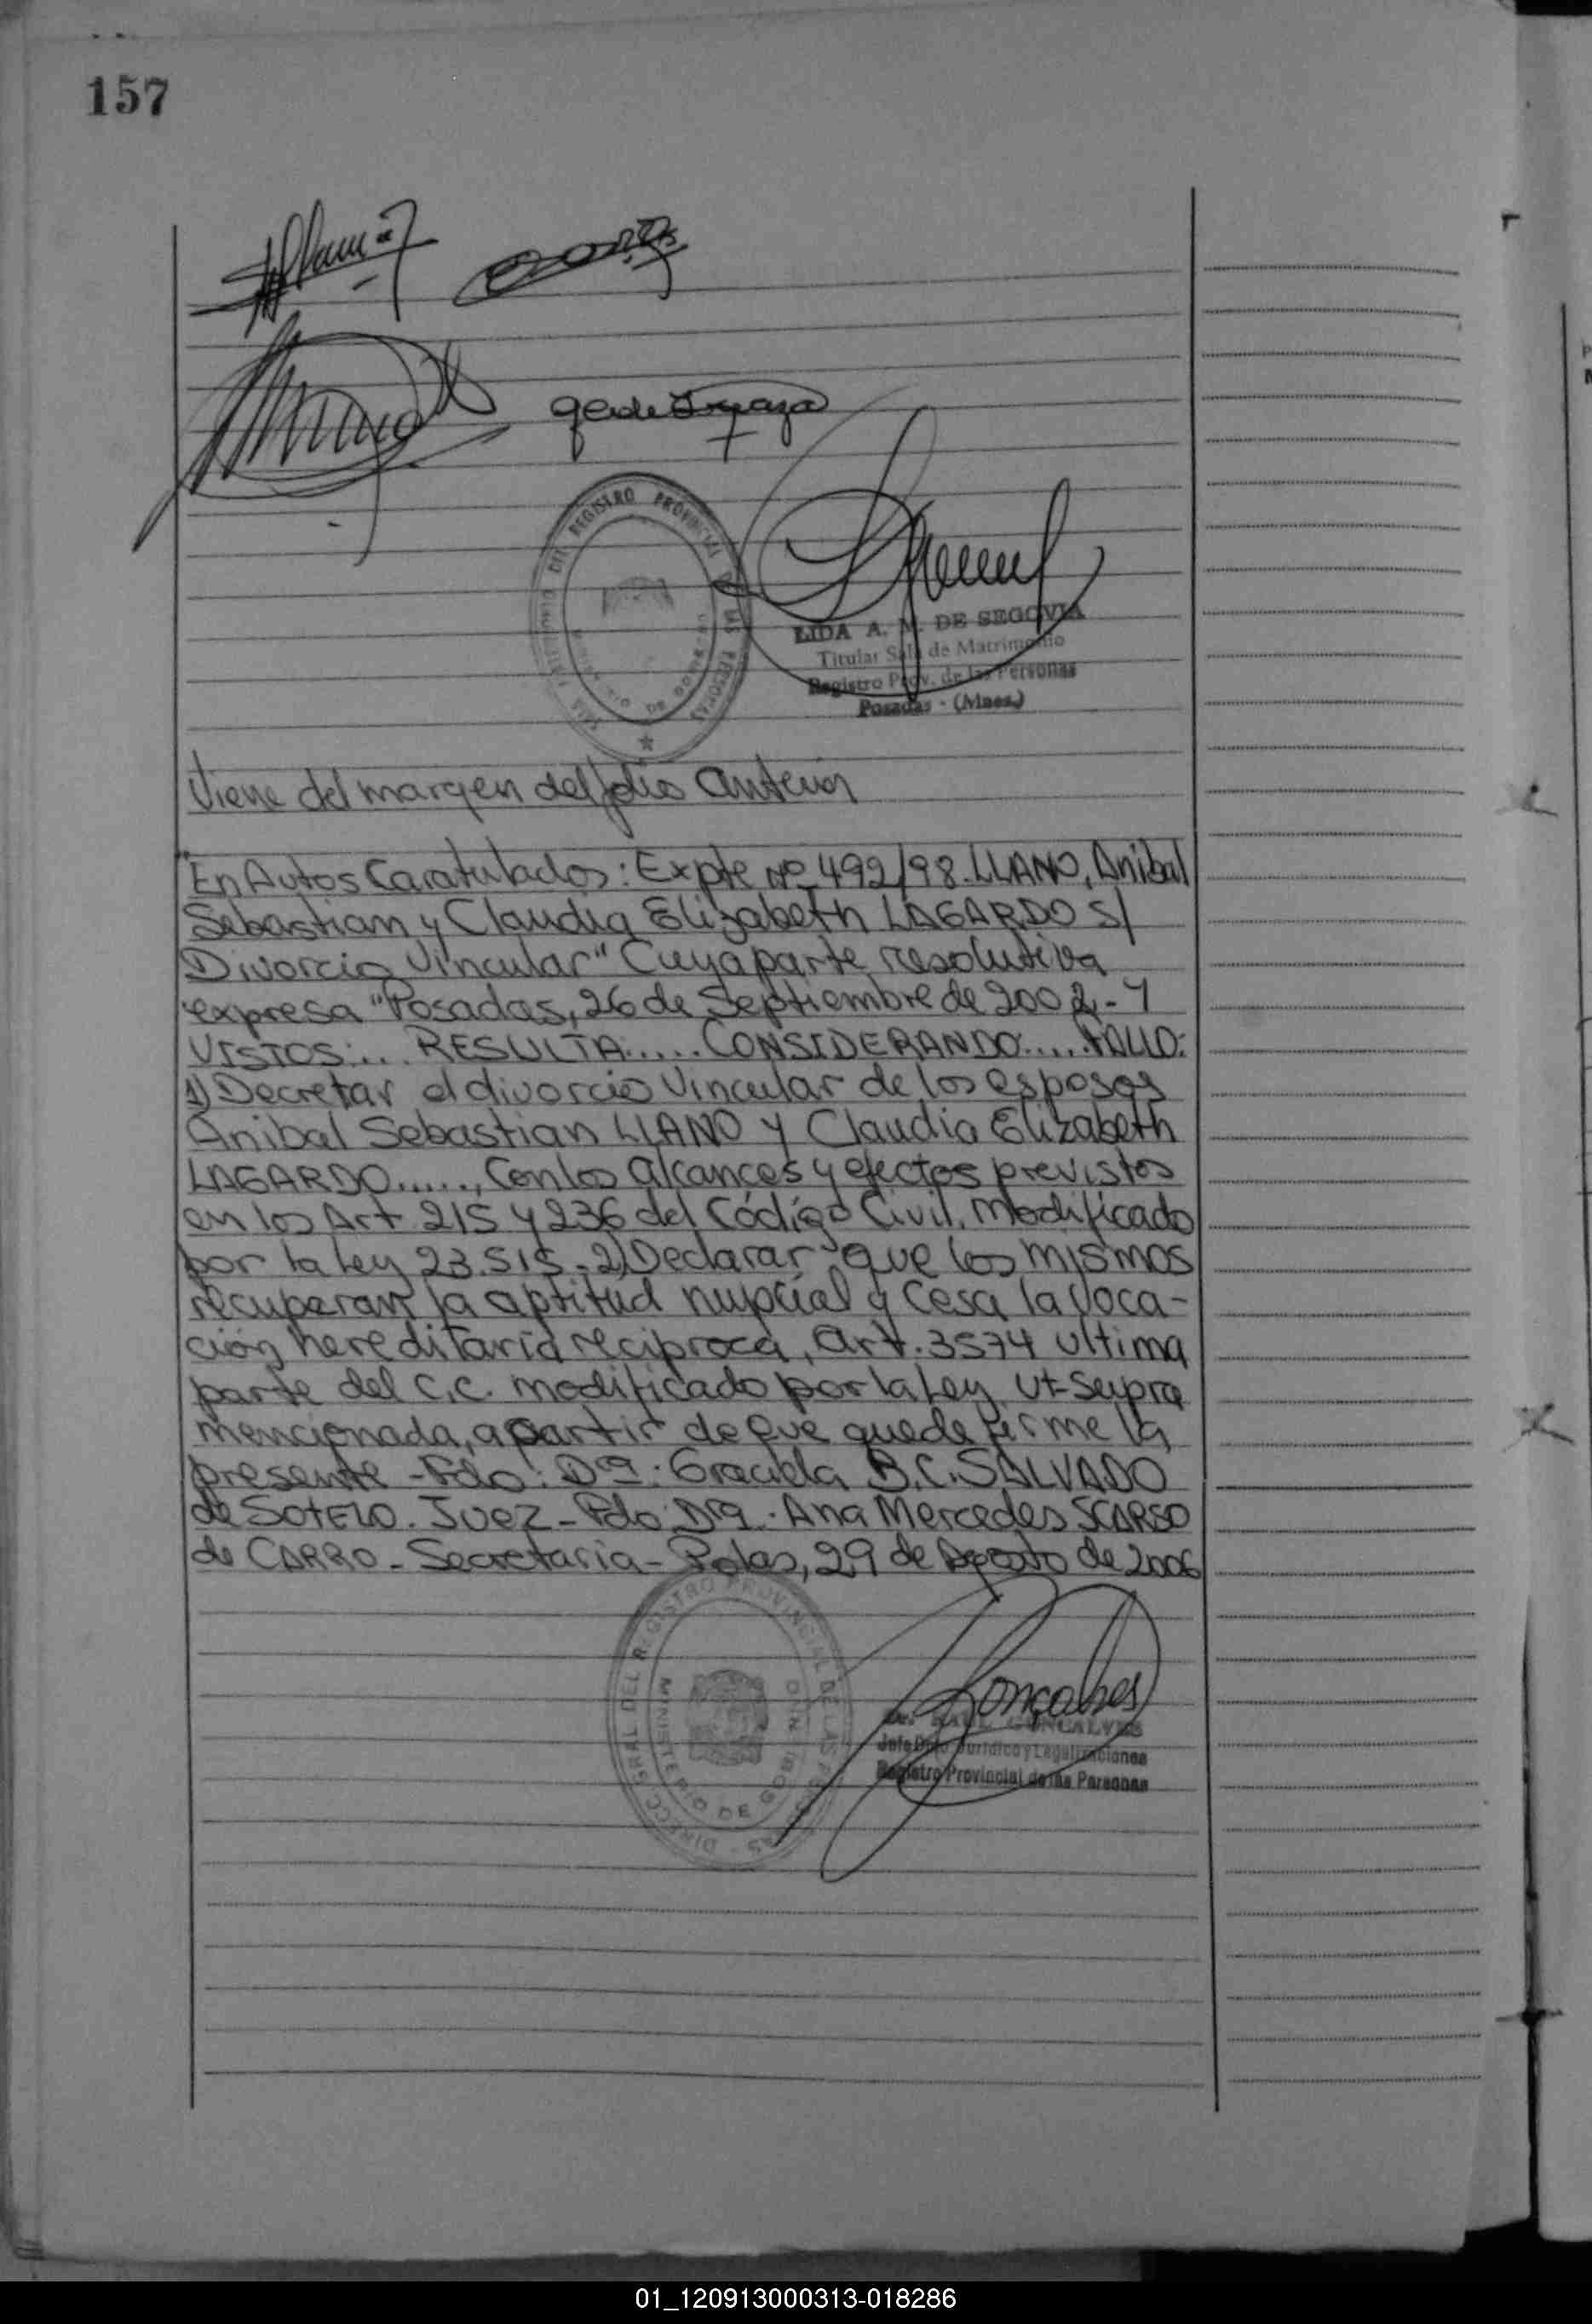 157
REGISTRO PROVINCIAL DE LAS PERSONAS
LIDA A. M. DE SEGOVIA
Titular Sala de Matrimonio
Registro Prov. de las Personas
Posadas - (Mnes.)
Viene del margen del folio anterior
"En Autos Caratulados: Expte Nº 492/98. LLANO, Anibal
Sebastian y Claudia Elizabeth LAGARDO s/
Divorcio Vincular" Cuya parte resolutiva
expresa "Posadas, 26 de Septiembre de 2002.- Y
VISTOS:... RESULTA:..... CONSIDERANDO:.... FALLO:
1) Decretar el divorcio Vincular de los esposos
Anibal Sebastian LLANO y Claudia Elizabeth
LAGARDO....., Con los alcances y efectos previstos
en los Art 215 y 236 del Código Civil, modificado
por la Ley 23.515.- 2) Declarar que los mismos
recuperan la aptitud nupcial y Cesa la Voca-
ción hereditaria reciproca, Art. 3574 ultima
parte del C.C. modificado por la Ley Ut-Supra
mencionada, a partir de que quede firme la
presente - Fdo: Dra: Graciela B.C. SALVADO
de SOTELO. Juez - Fdo Dra. Ana Mercedes SCARSO
de CARRO - Secretaria - Pdas, 29 de Agosto de 2006
DIRECC GRAL DEL REGISTRO PROVINCIAL DE LAS PERSONAS
MINISTERIO DE GOBIERNO
Dr. RAUL GONCALVES
Jefe Dpto Jurídico y Legalizaciones
Registro Provincial de las Personas
01_120913000313-018286